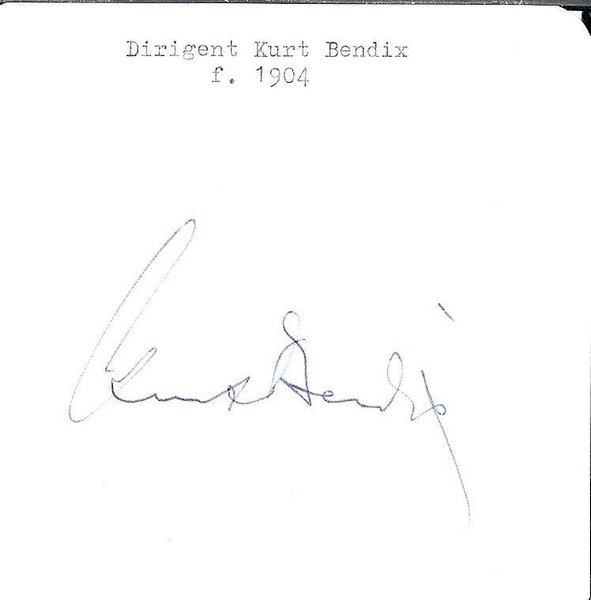 Dirigent Kurt Bendix
f. 1904
Kurt Bendix